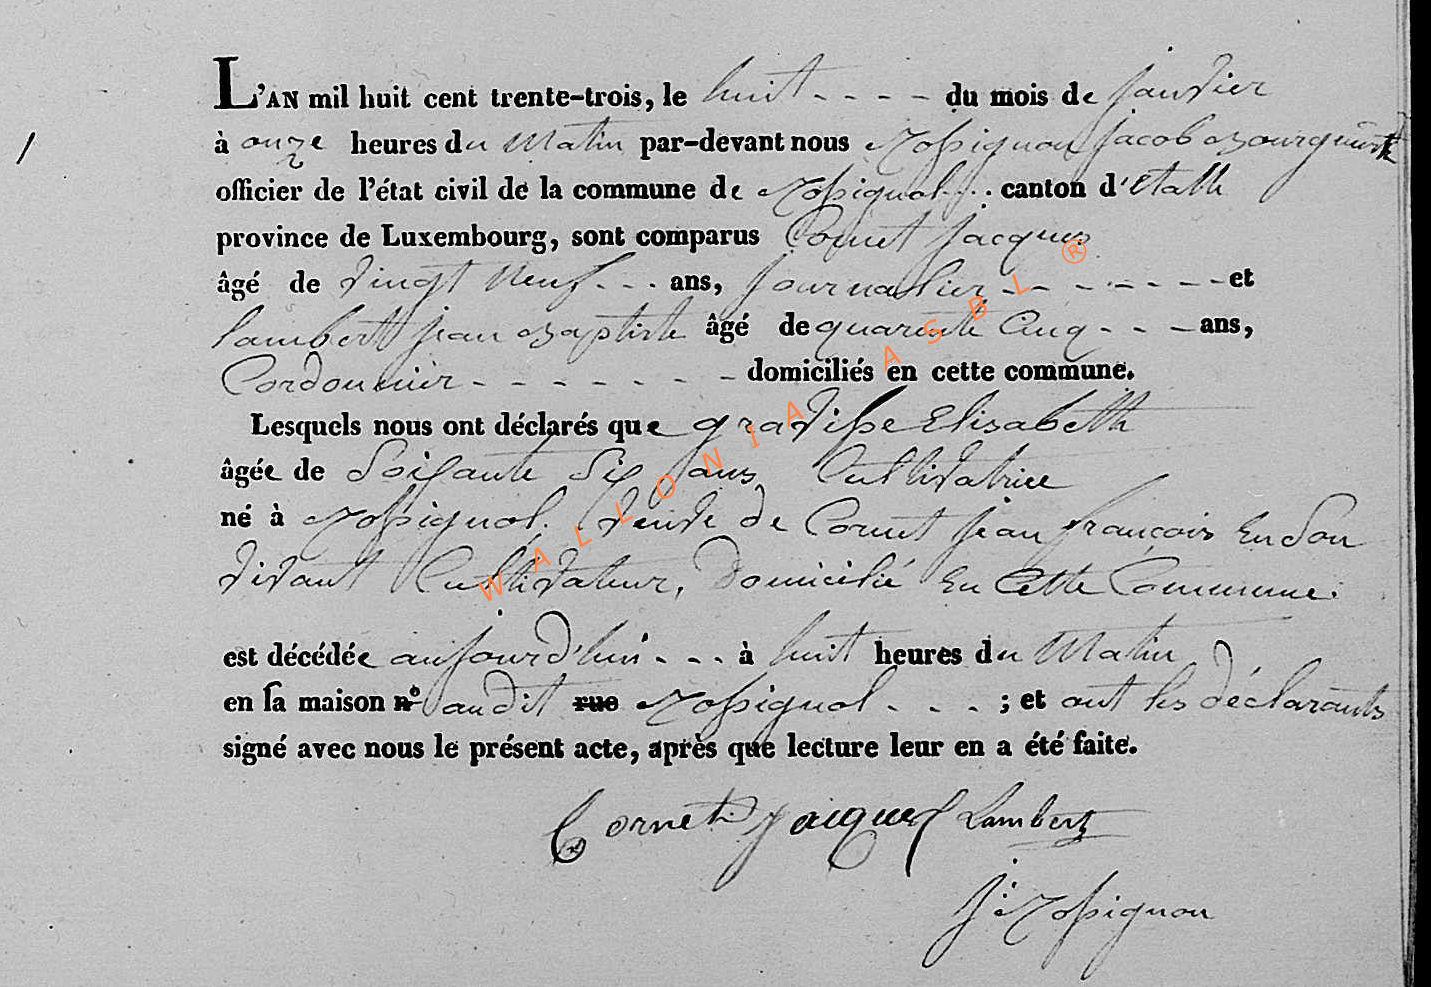 L'AN mil huit cent trente-trois, le huit - - - - du mois de janvier
/
à onze heures du Matin par-devant nous Rossignon jacob Bourguemestre
officier de l'état civil de la commune de Rossignol . . . canton d'Etalle
province de Luxembourg, sont comparus Cornet jacques
âgé de vingt Neuf - - - ans, journalier - - - - - - - - et
lambert jean Baptiste âgé de quarente Cinq - - - ans,
Cordonnier - - - - - - - - domiciliés en cette commune.
Lesquels nous ont déclarés que gravisse Elisabeth
âgée de Soixante Six ans Cultivatrice
né à Rossignol. veuve de Cornet jean françois En Son
vivant Cultivateur, Domicilié En Cette Commune.
est décédée aujourd'hui - - - à huit heures du Matin
en sa maison n° audit rue Rossignol - - - ; et ont les déclarants
signé avec nous le présent acte, après que lecture leur en a été faite.
Cornet jaiques Lambert
j. Rossignon
WALLONIA ASBL ®